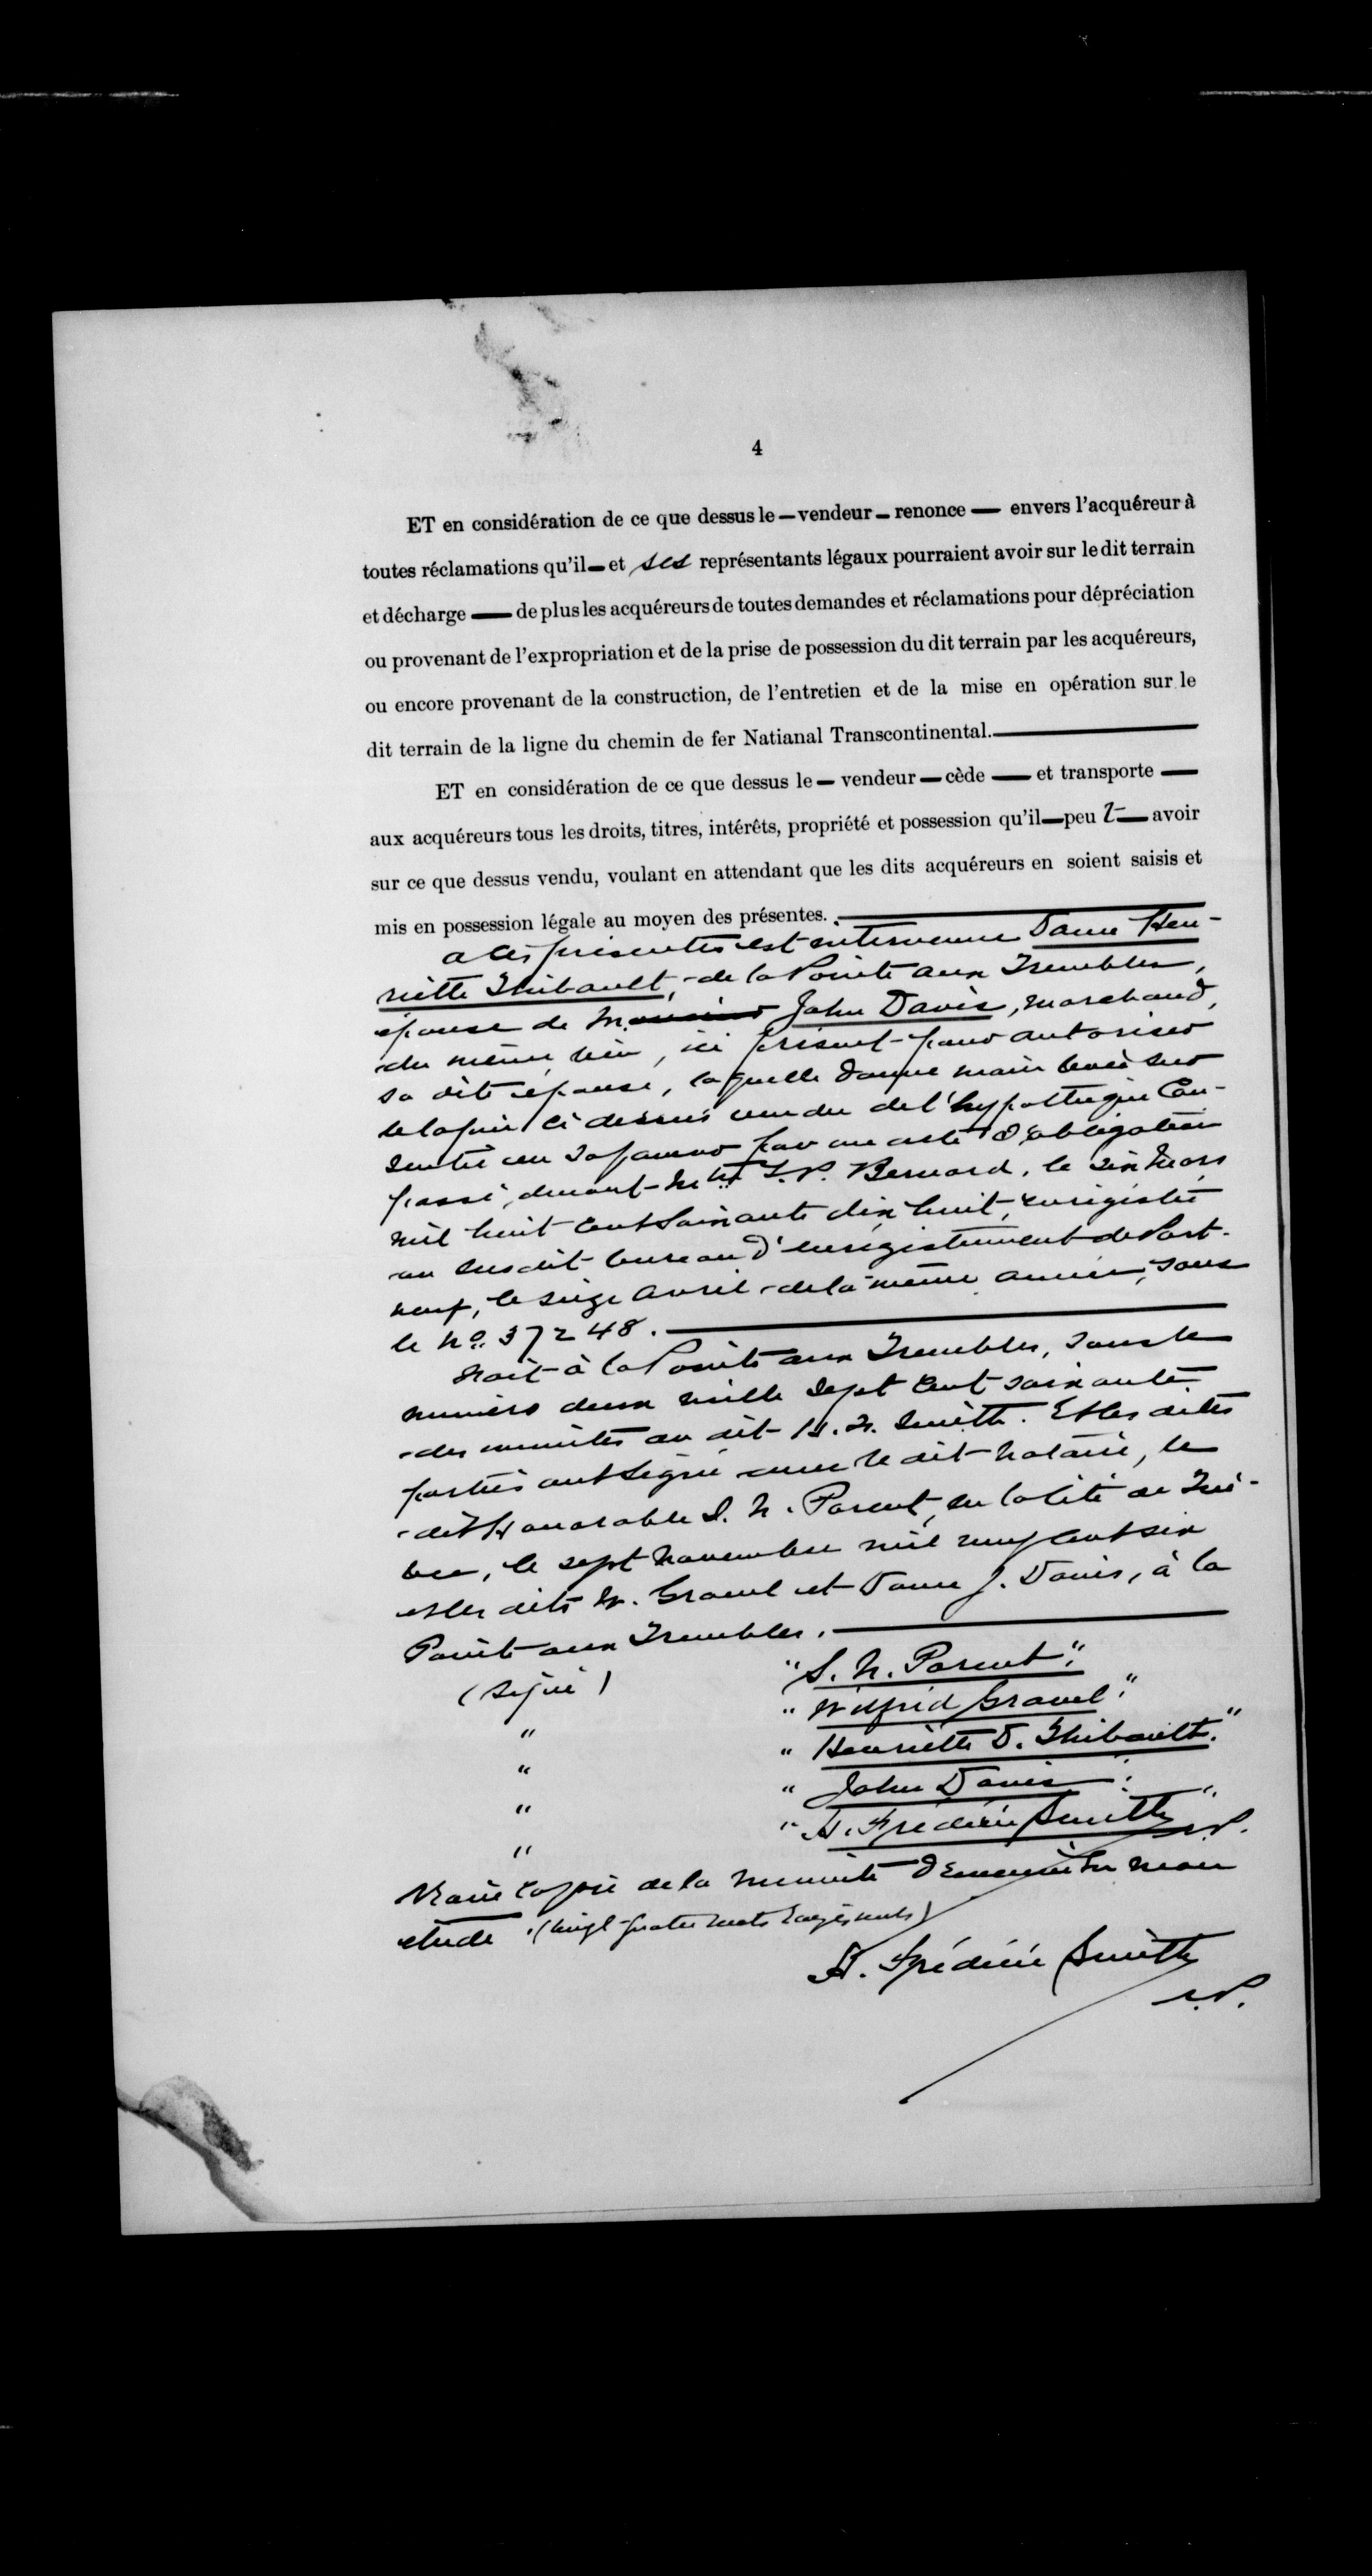 4
ET en considération de ce que dessus le — vendeur — renonce — envers l'acquéreur à
toutes réclamations qu'il — et ses représentants légaux pourraient avoir sur le dit terrain
et décharge — de plus les acquéreurs de toutes demandes et réclamations pour dépréciation
ou provenant de l'expropriation et de la prise de possession du dit terrain par les acquéreurs,
ou encore provenant de la construction, de l'entretien et de la mise en opération sur le
dit terrain de la ligne du chemin de fer Natianal Transcontinental. —
ET en considération de ce que dessus le — vendeur — cède — et transporte —
aux acquéreurs tous les droits, titres, intérêts, propriété et possession qu'il — peu t — avoir
sur ce que dessus vendu, voulant en attendant que les dits acquéreurs en soient saisis et
mis en possession légale au moyen des présentes. —
a ces présentes est intervenue Dame Hen-
riette Thibault, de la Pointe aux Trembles,
épouse de M. John Davis, marchand,
du même lieu, ici présent pour autoriser
sa dite épouse, laquelle donne main levée sur
le lopin ci dessus vendu de l'hypothèque con-
sentie en sa faveur par un acte d'obligation
passé devant Mtre L. P. Bernard, le six Mars
mil huit cent soixante dix huit, enregistré
au susdit bureau d'enregistrement de Port-
neuf, le seize avril de la même année, sous
le No. 37248. —
Fait à la Pointe aux Trembles, sous le
numéro deux mille sept cent soixante
des minutes du dit H. F. Smith. Et les dites
parties ont signé avec le dit notaire, le
dit Honorable S. N. Parent, en la cité de Qué-
bec, le sept novembre mil neuf cent six
et les dits W. Gravel et Dame J. Davis, à la
Pointe aux Trembles. —
(Signé) "S. N. Parent"
" "Wilfrid Gravel"
" "Henriette D. Thibault."
" "John Davis"
" "H. Frédéric Smith" N.P.
Vraie copie de la minute demeurée en mon
étude. (vingt quatre mots rayés nuls)
H. Frédéric Smith
N.P.